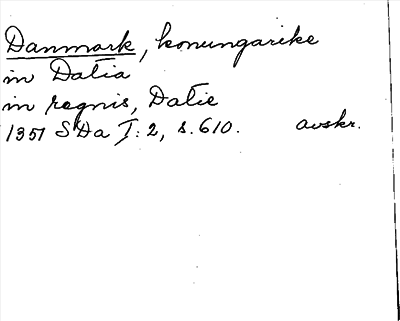 Danmark, konungarike
in Datia
in regnis, Datie
1351 SDa I: 2, s. 610. avskr.